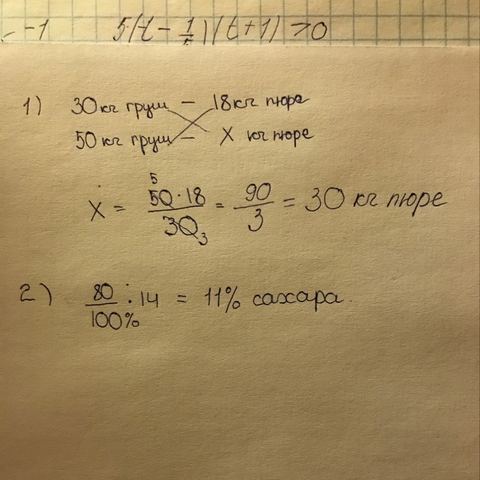 -1 5(t - 1/5)(t+1) > 0
1) 30кг груш - 18кг пюре
50кг груш - X кг пюре
X = 5 50·18 / 30 3 = 90/3 = 30 кг пюре
2) 80/100% : 14 = 11% сахара.